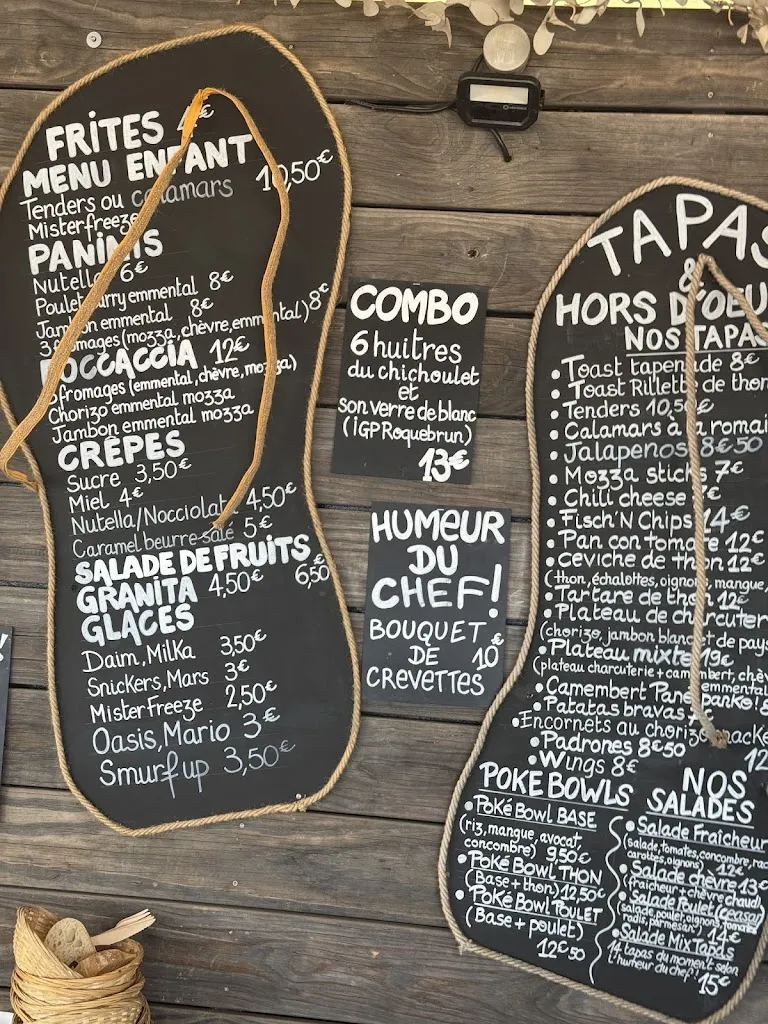 FRITES 4€
MENU ENFANT
Tenders ou calamars 10,50€
Misterfreeze
PANINIS
Nutella 6€
Poulet curry emmental 8€
Jambon emmental 8€
3 fromages (mozza, chèvre, emmental) 8€
FOCCACCIA 12€
3 fromages (emmental, chèvre, mozza)
Chorizo emmental mozza
Jambon emmental mozza
CRÊPES
Sucre 3,50€
Miel 4€
Nutella/Nocciolat 4,50€
Caramel beurre salé 5€
SALADE DE FRUITS 6,50€
GRANITA 4,50€
GLACES
Daim, Milka 3,50€
Snickers, Mars 3€
Mister Freeze 2,50€
Oasis, Mario 3€
Smurf up 3,50€
COMBO
6 huitres
du chichoulet
et
son verre de blanc
(IGP Roquebrun)
13€
HUMEUR
DU
CHEF!
BOUQUET
DE 10€
CREVETTES
!
TAPAS
&
HORS D'OEU
NOS TAPAS
• Toast tapenade 8€
• Toast Rillette de thon
• Tenders 10,50€
• Calamars à la romai
• Jalapenos 8€50
• Mozza sticks 7€
• Chili cheese €
• Fisch'N Chips 14€
• Pan con tomate 12€
• Ceviche de thon 12€
(thon, échalottes, oignons, mangue,
• Tartare de thon 12€
• Plateau de charcuter
(chorizo, jambon blanc et de pays
• Plateau mixte 19€
(plateau charcuterie + camembert, chèv
emmental
• Camembert Pané panko
• Patatas bravas
• Encornets au chorizo
12
• Padrones 8€50
• Wings 8€
POKE BOWLS
• Poké Bowl BASE
(riz, mangue, avocat,
concombre) 9,50€
• Poké Bowl THON
(Base + thon) 12,50€
• Poké Bowl POULET
(Base + poulet)
12€50
NOS
SALADES
• Salade Fraîcheur
(salade, tomates, concombre, rad
carottes, oignons) 12€
• Salade chèvre 13€
(fraicheur + chèvre chaud)
• Salade Poulet (ceasar)
(salade, poulet, oignons, tomates
radis, parmesan) 14€
• Salade Mix Tapas
14 tapas du moment selon
l'humeur du chef! 15€